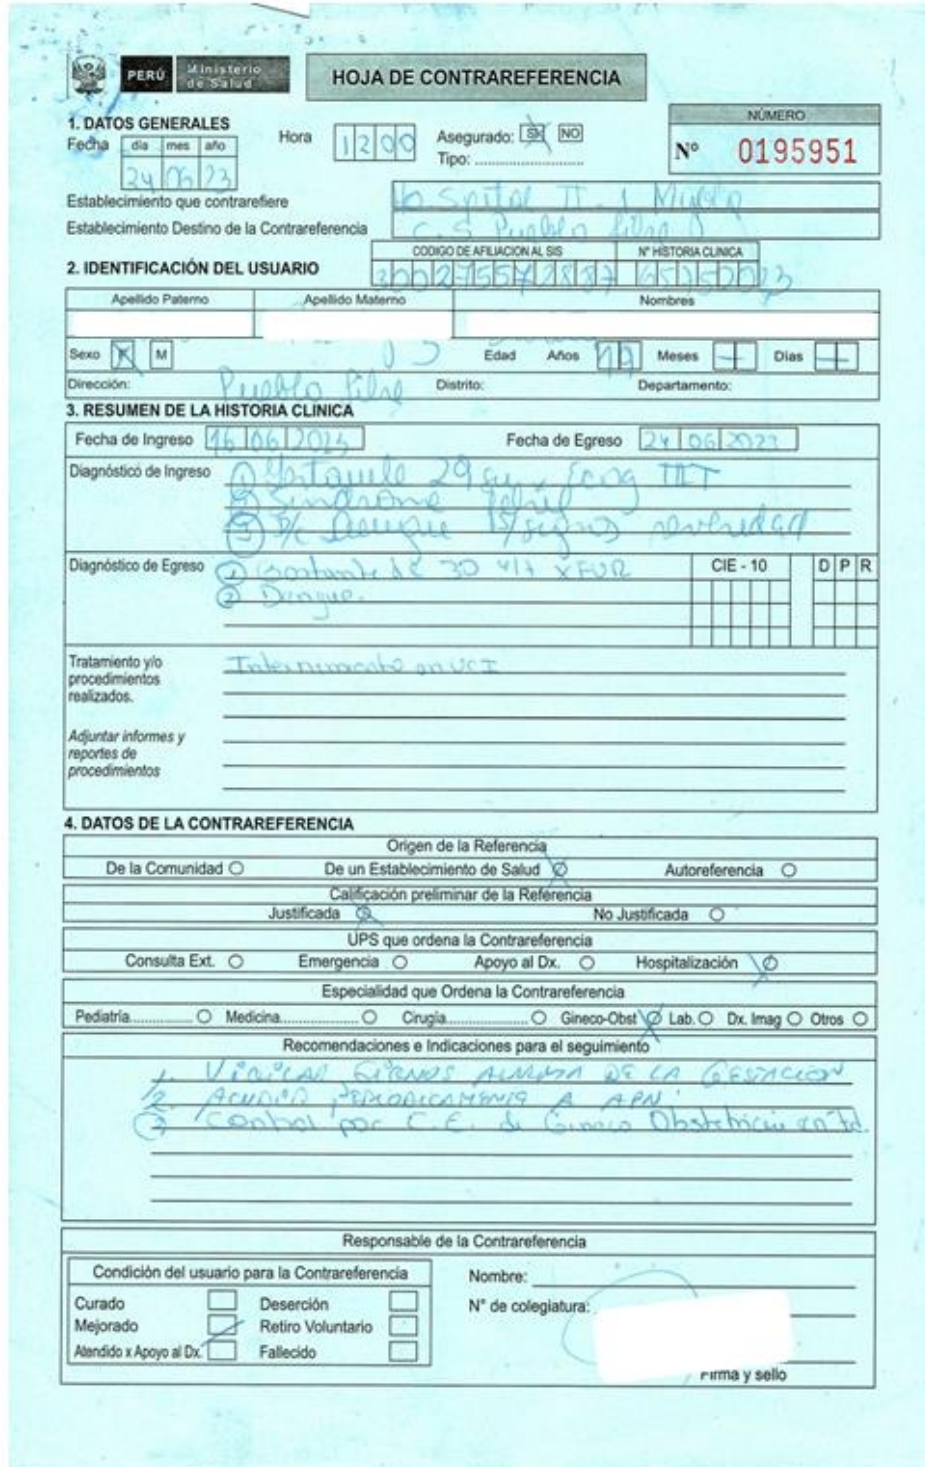 PERÚ Ministerio de Salud
HOJA DE CONTRAREFERENCIA
NÚMERO
Nº 0195951
1. DATOS GENERALES
Fecha día mes año
24 06 23
Hora 12 00
Asegurado: SI NO
Tipo: ........................
Establecimiento que contrarefiere II - 1
Establecimiento Destino de la Contrareferencia C.S Pueblo libre
2. IDENTIFICACIÓN DEL USUARIO
CODIGO DE AFILIACION AL SIS Nº HISTORIA CLINICA
Apellido Paterno Apellido Materno Nombres
Sexo F M Edad Años 19 Meses Días
Dirección: Pueblo libre Distrito: Departamento:
3. RESUMEN DE LA HISTORIA CLINICA
Fecha de Ingreso 16 06 2023 Fecha de Egreso 24 06 2023
Diagnóstico de Ingreso ① 29
② Síndrome febril
③ Dengue signos severidad
Diagnóstico de Egreso ① Gestante de 30 x FUR
② Dengue.
CIE - 10 D P R
Tratamiento y/o procedimientos realizados. Internamiento en UCI
Adjuntar informes y reportes de procedimientos
4. DATOS DE LA CONTRAREFERENCIA
Origen de la Referencia
De la Comunidad De un Establecimiento de Salud Autoreferencia
Calificación preliminar de la Referencia
Justificada No Justificada
UPS que ordena la Contrareferencia
Consulta Ext. Emergencia Apoyo al Dx. Hospitalización
Especialidad que Ordena la Contrareferencia
Pediatría............... Medicina................... Cirugía.................... Gineco-Obst Lab. Dx. Imag Otros
Recomendaciones e Indicaciones para el seguimiento
1. VIGILAR SIGNOS ALARMA DE LA GESTACION
2. ACUDIR PERIODICAMENTE A APN.
③ Control por C.E. de Gineco Obstetricia en
Responsable de la Contrareferencia
Condición del usuario para la Contrareferencia
Curado Deserción
Mejorado Retiro Voluntario
Atendido x Apoyo al Dx. Fallecido
Nombre:
N° de colegiatura:
Firma y sello